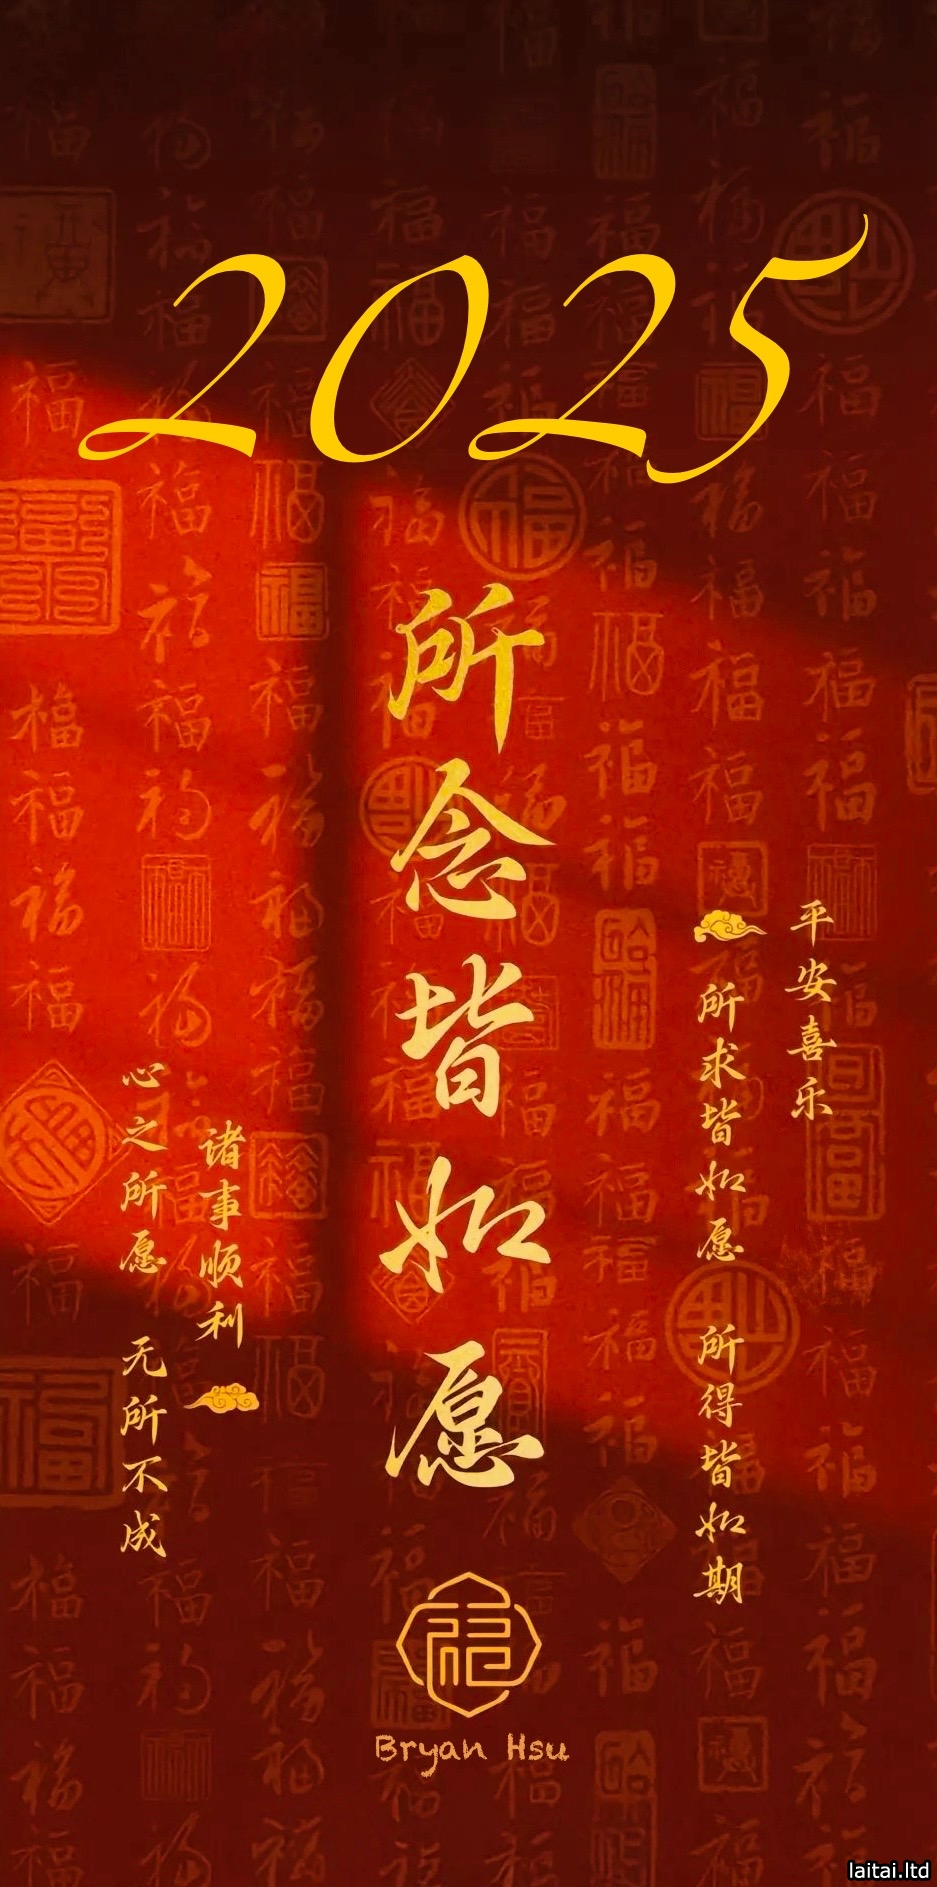 2025
所念皆如愿
平安喜乐
所求皆如愿 所得皆如期
诸事顺利
心之所愿 无所不成
Bryan Hsu
laitai.ltd